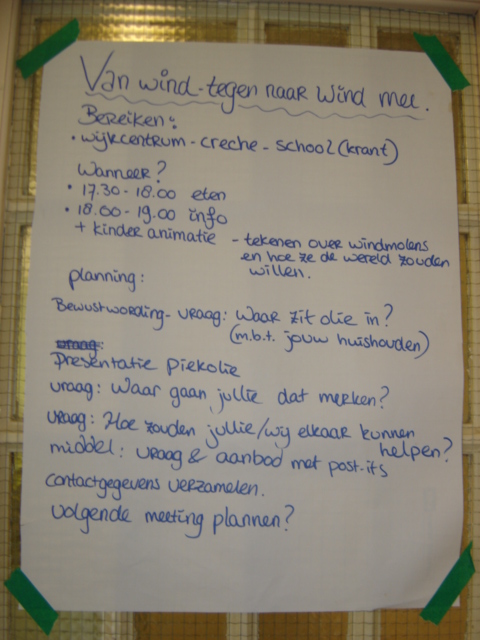 Van wind-tegen naar wind mee.
Bereiken:
• wijkcentrum - creche - school (krant)
Wanneer?
• 17.30 - 18.00 eten
• 18.00 - 19.00 info
+ kinder animatie - tekenen over windmolens
en hoe ze de wereld zouden
willen.
planning:
Bewustwording - vraag: Waar zit olie in?
(m.b.t. jouw huishouden)
vraag:
Presentatie Piekolie
vraag: Waar gaan jullie dat merken?
vraag: Hoe zouden jullie/wij elkaar kunnen
helpen?
middel: vraag & aanbod met post-its
contactgegevens verzamelen.
volgende meeting plannen?